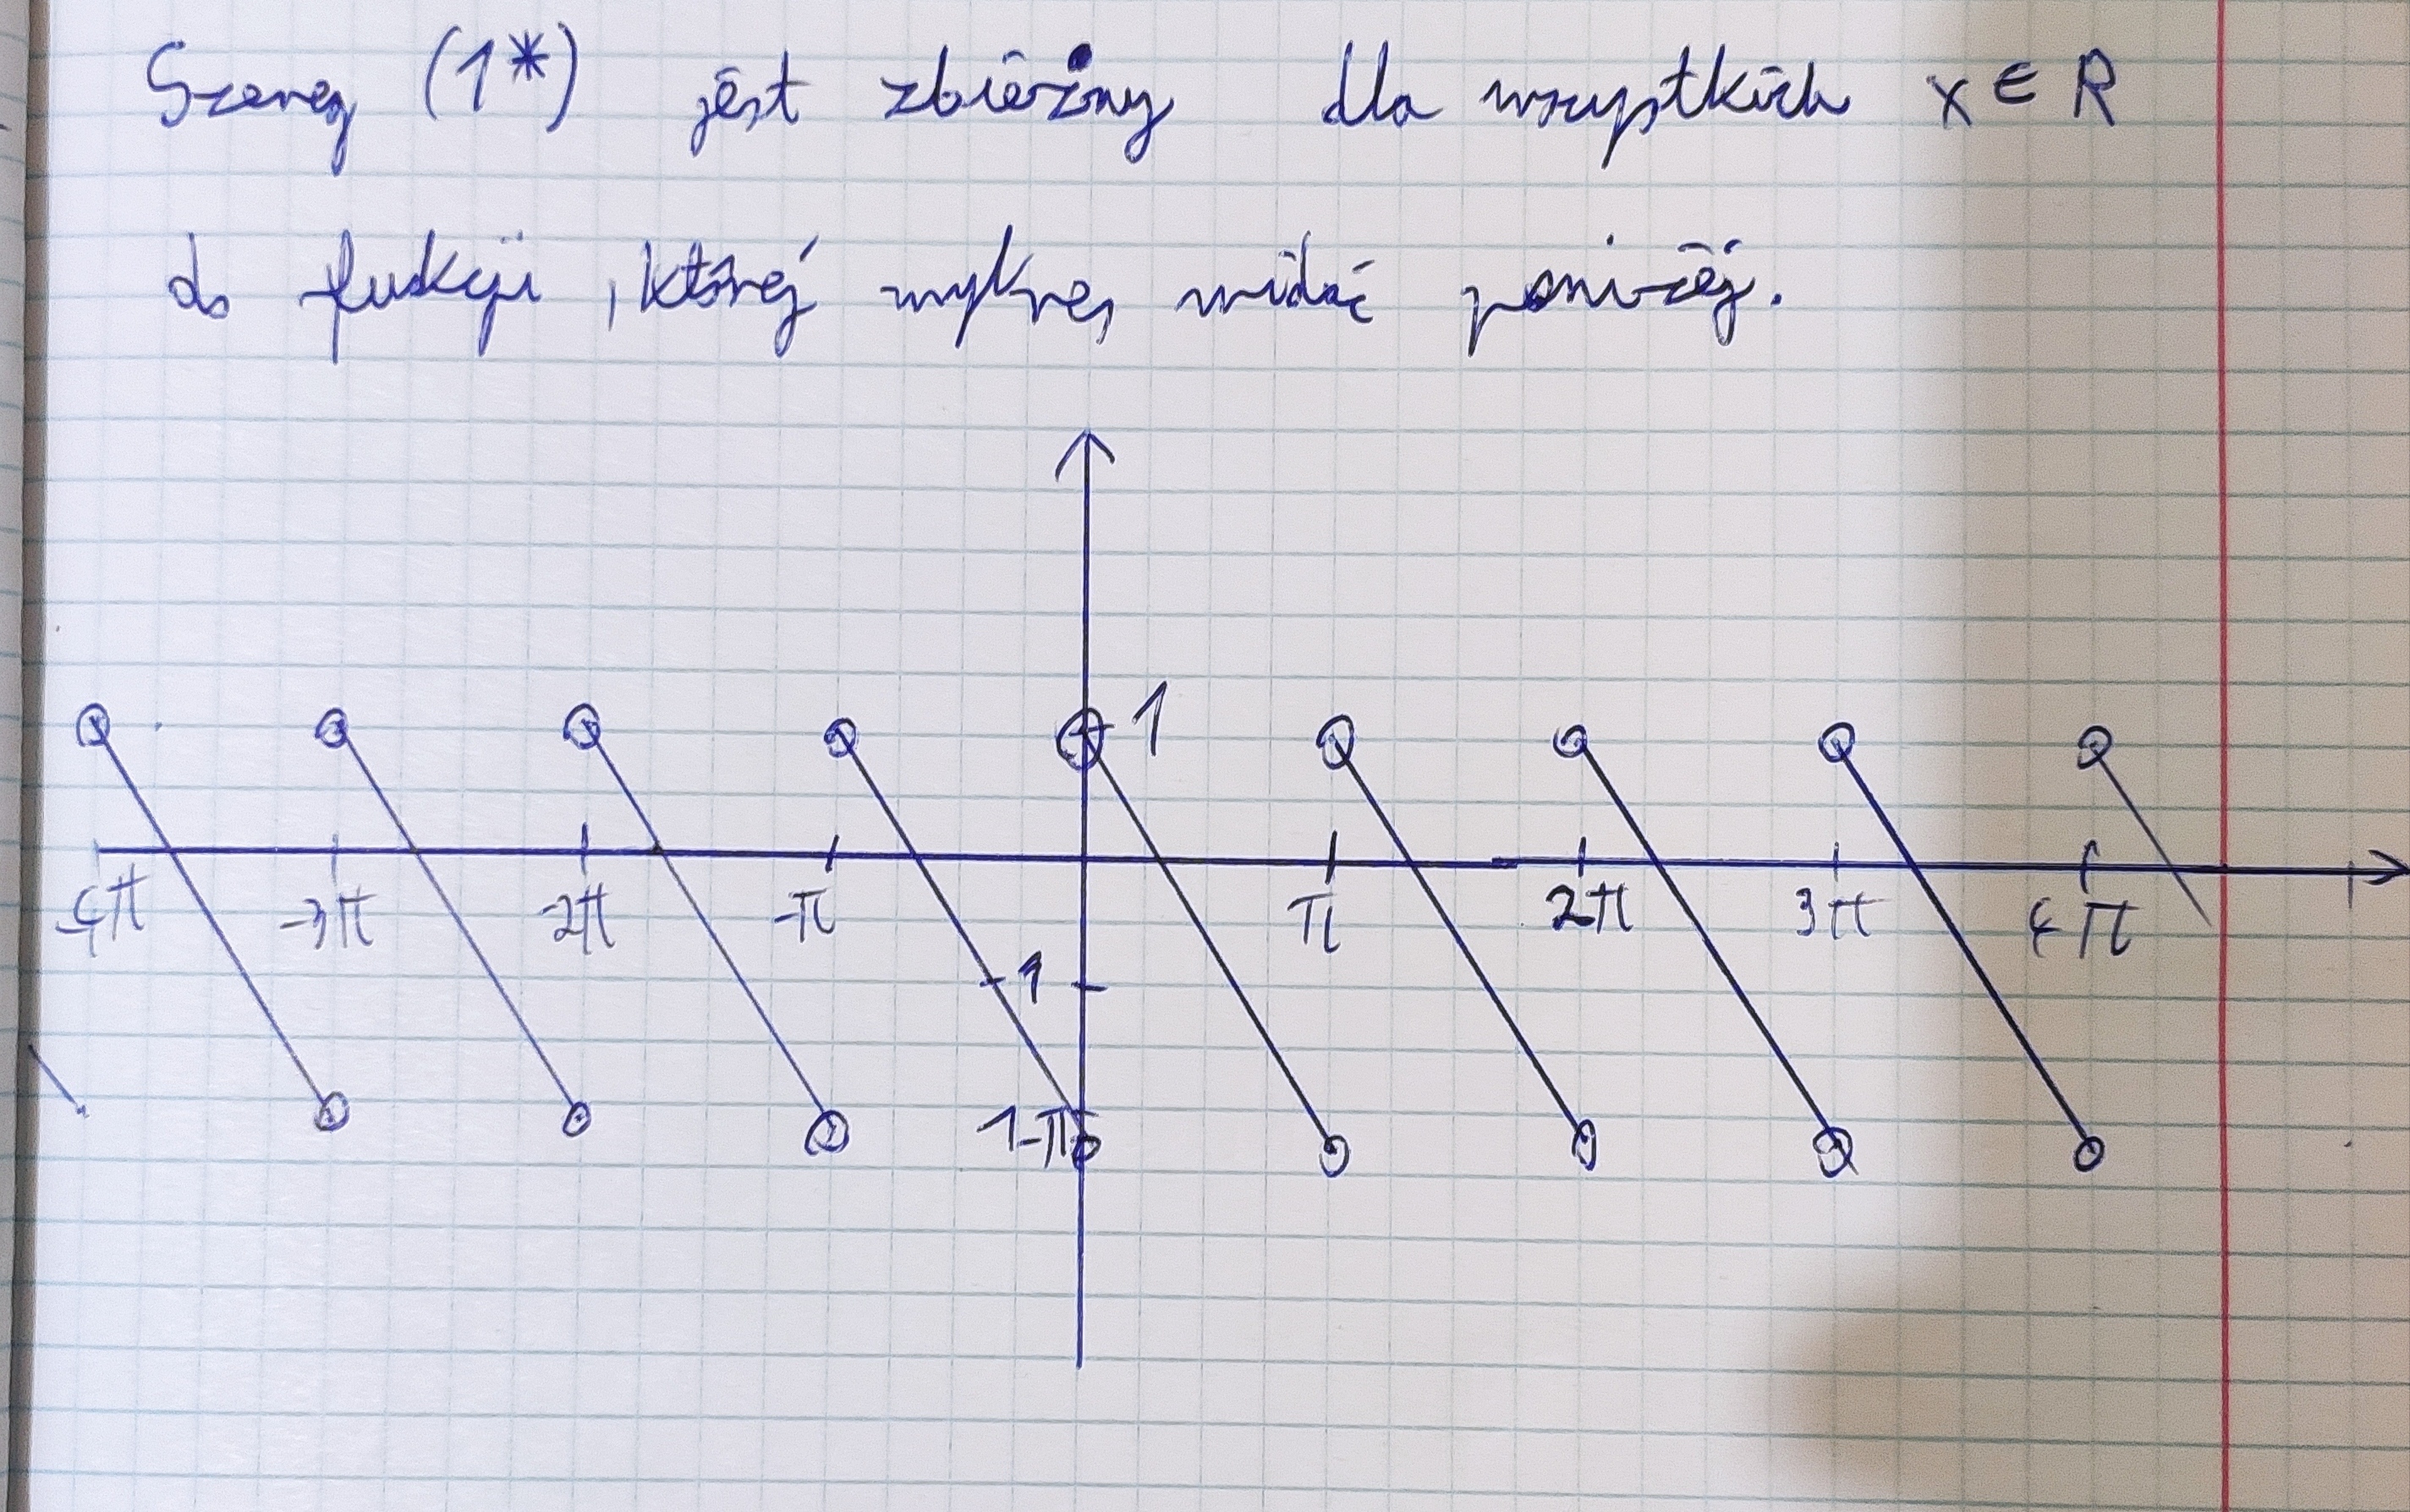 Szereg (1*) jest zbieżny dla wszystkich x ∈ R
do fukcji, której wykres widać poniżej.
1
-4π -3π -2π -π π 2π 3π 4π
-1
1-π